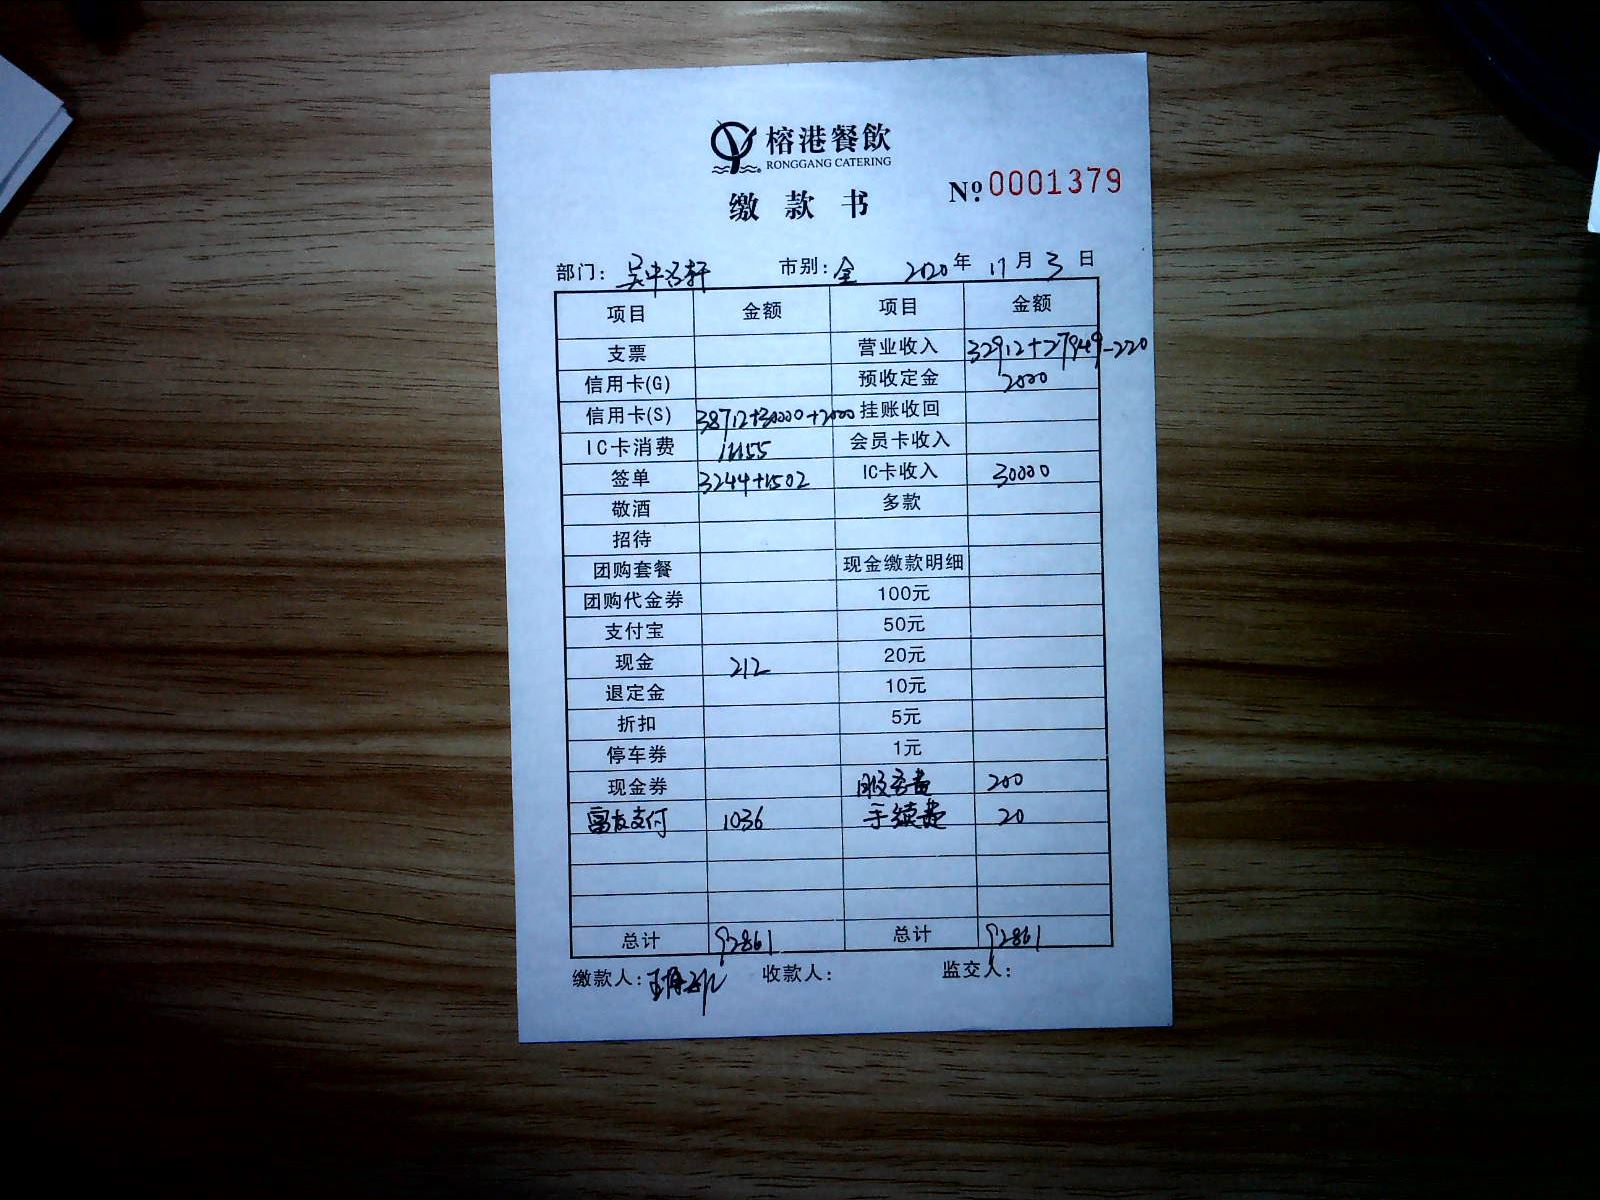 榕港餐飲
RONGGANG CATERING
缴款书 №0001379
部门：吴中名轩 市别：全 2020年11月3日
项目 金额 项目 金额
支票 营业收入 32912+27949-220
信用卡(G) 预收定金 2000
信用卡(S) 38712+30000+2000 挂账收回
IC卡消费 16155 会员卡收入
签单 3244+1502 IC卡收入 30000
敬酒 多款
招待
团购套餐 现金缴款明细
团购代金券 100元
支付宝 50元
现金 212 20元
退定金 10元
折扣 5元
停车券 1元
现金券 服务费 200
富友支付 1036 手续费 20
总计 92861 总计 92861
缴款人： 收款人： 监交人：